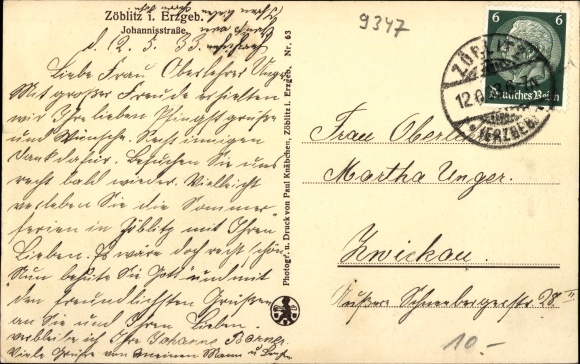 Zöblitz i. Erzgeb.
Johannisstraße.
d. 12. 5. 33.
Liebe Frau Oberlehrer Unger
Mit großer Freude erhielten
wir Ihre lieben Pfingstgrüße
und Wünsche. Recht innigen
Dank dafür. Besuchen Sie uns
recht bald wieder. Vielleicht
verleben Sie die Sommer-
ferien in Zöblitz mit Ihren
Lieben. Es wäre doch recht schön
Nun behüte Sie Gott und mit
den freundlichsten Grüßen
an Sie und Ihren Lieben
verbleibe ich Ihre Johanne
Viele Grüße von meinen Mann u.
Photogr. u. Druck von Paul Knäbchen, Zöblitz i. Erzgeb. Nr. 63
9347
6 6
Deutsches Reich
ZÖBLITZ
(ERZGEB.)
Frau
Martha Unger.
Zwickau.
Äußere Schneebergerstr. 28 II
10.-